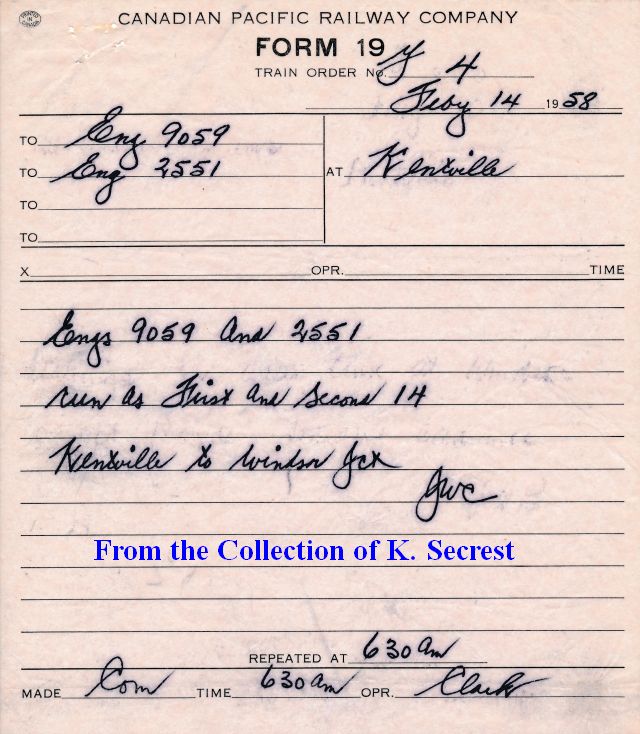 PRINTED IN CANADA
CANADIAN PACIFIC RAILWAY COMPANY
FORM 19 Y
TRAIN ORDER No. 4
Feby 14 1958
TO Eng 9059
TO Eng 2551
AT Kentville
TO
TO
X OPR. TIME
Engs 9059 and 2551
run as First and Second 14
Kentville to Windsor Jct
JWC
From the Collection of K. Secrest
REPEATED AT 630 am
MADE Com TIME 630 am OPR. Clark